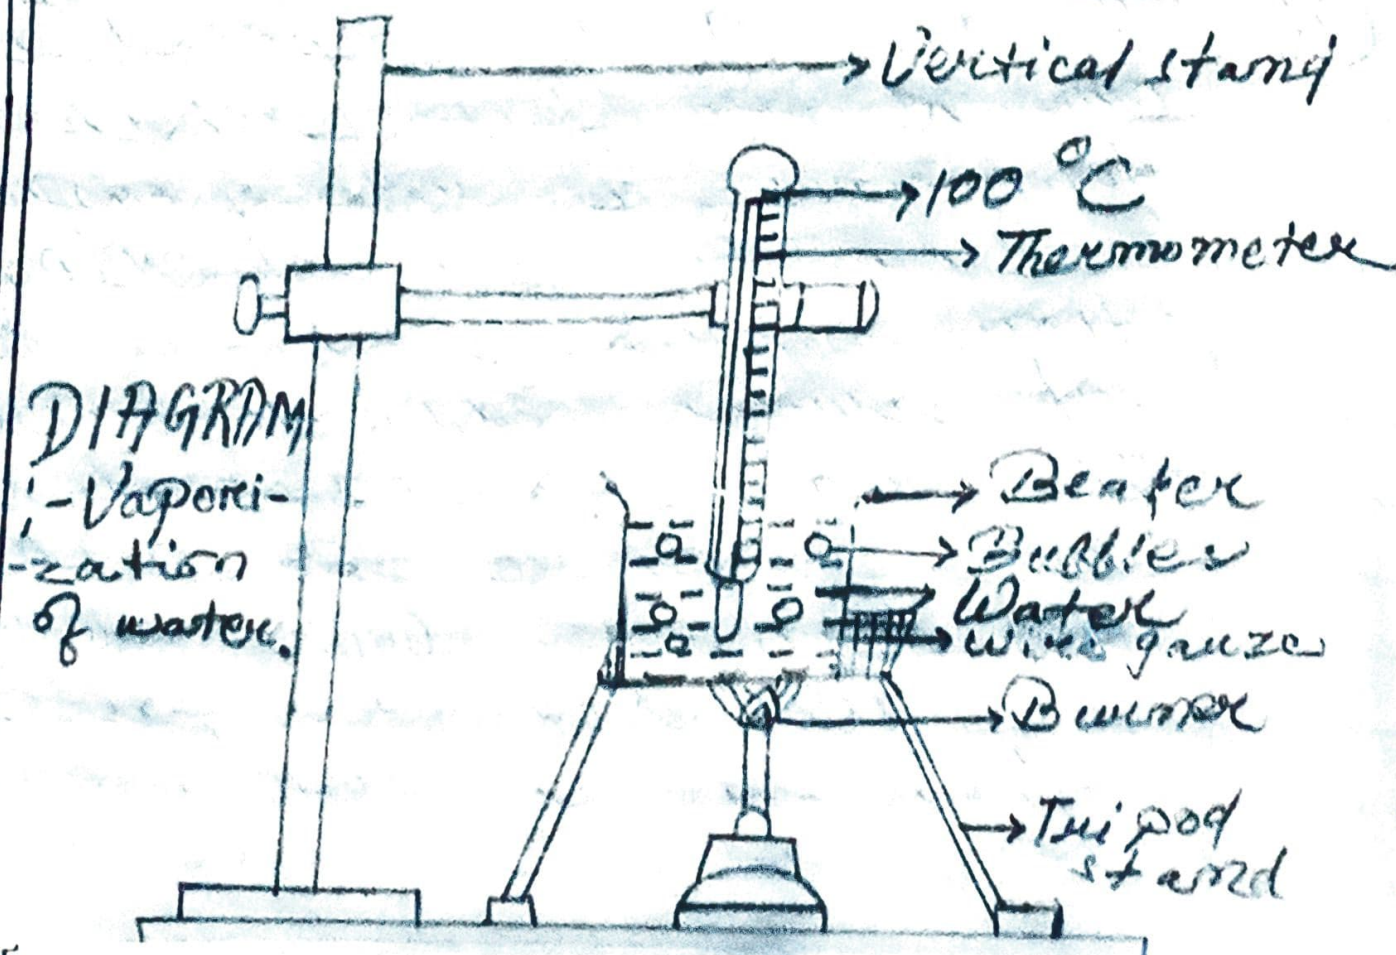 Vertical stand
100 °C
Thermometer
DIAGRAM
:-Vapori-
-zation
of water.
Beaker
Bubbles
Water
Wire gauze
Burner
Tripod
stand